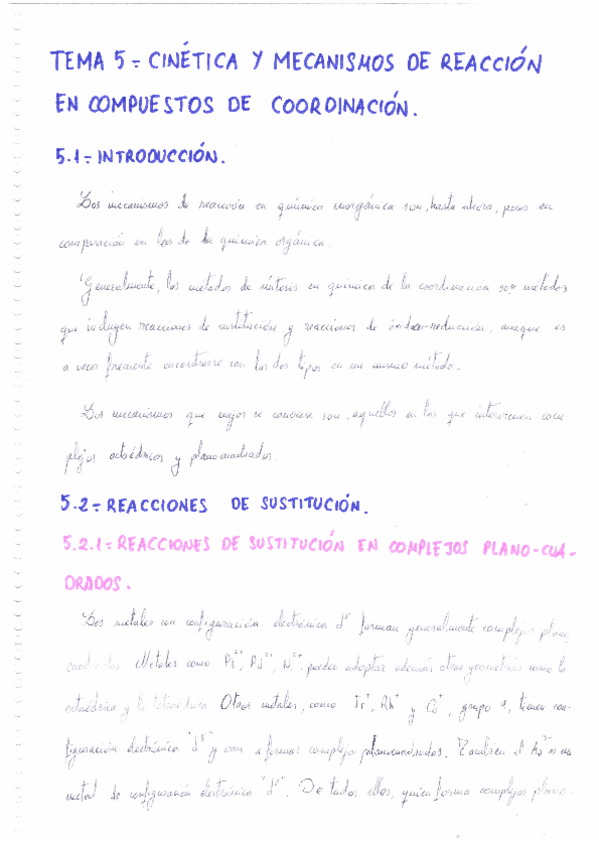 TEMA 5.- CINÉTICA Y MECANISMOS DE REACCIÓN
EN COMPUESTOS DE COORDINACIÓN.
5.1.- INTRODUCCIÓN.
Los mecanismos de reacción en química inorgánica son, hasta ahora, pocos en
comparación con los de la química orgánica.
Generalmente, los métodos de síntesis en química de la coordinación son métodos
que incluyen reacciones de sustitución y reacciones de óxido-reducción, aunque es
a veces frecuente encontrarse con los dos tipos en un mismo método.
Los mecanismos que mejor se conocen son aquellos en los que intervienen com-
plejos octaédricos y planocuadrados.
5.2.- REACCIONES DE SUSTITUCIÓN.
5.2.1.- REACCIONES DE SUSTITUCIÓN EN COMPLEJOS PLANO-CUA-
DRADOS.
Los metales con configuración electrónica d⁸ forman generalmente complejos plano
cuadrados. Metales como Pt²⁺, Pd²⁺, Ni²⁺ pueden adoptar además otras geometrías como la
octaédrica y la tetraédrica. Otros metales, como Ir⁺, Rh⁺ y Co⁺, grupo 9, tienen con-
figuración electrónica "d⁸" y van a formar complejos planocuadrados. También el es un
metal de configuración electrónica "d⁸". De todos ellos, quien forma complejos plano-